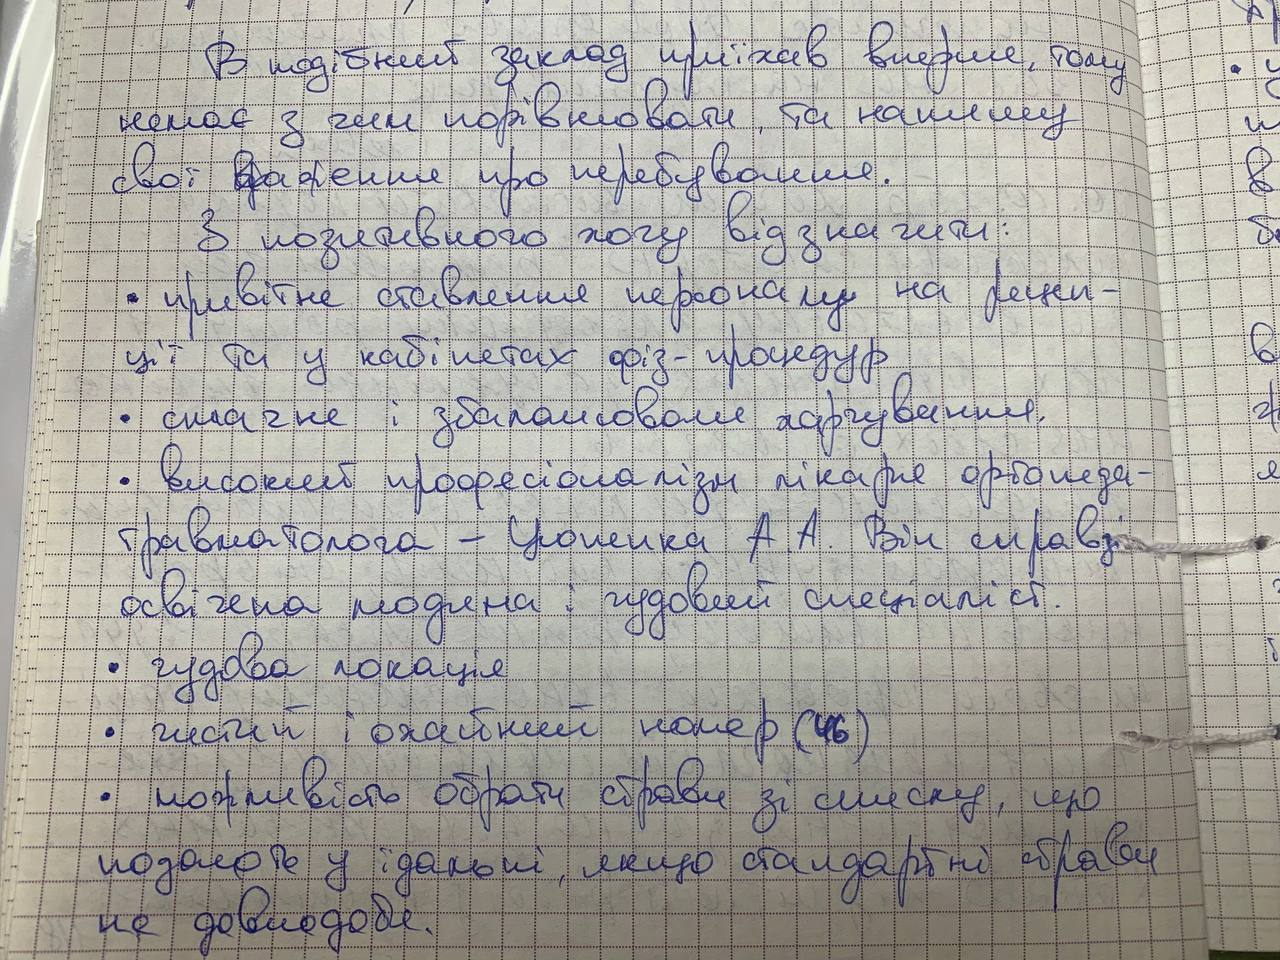 В подібний заклад приїхав вперше, тому
немає з чим порівнювати, та напишу
свої враження про перебування.
З позитивного хочу відзначити:
• привітне ставлення персоналу на рецеп-
ції та у кабінетах фіз-процедур
• смачне і збалансоване харчування.
• високий професіоналізм лікаря ортопеда-
травматолога – А.А. Він справді
освічена людина і чудовий спеціаліст.
• чудова локація
• чистий і охайний номер (46)
• можливість обрати страви зі списку, що
подають у їдальні, якщо стандартні страви
не довподоби.